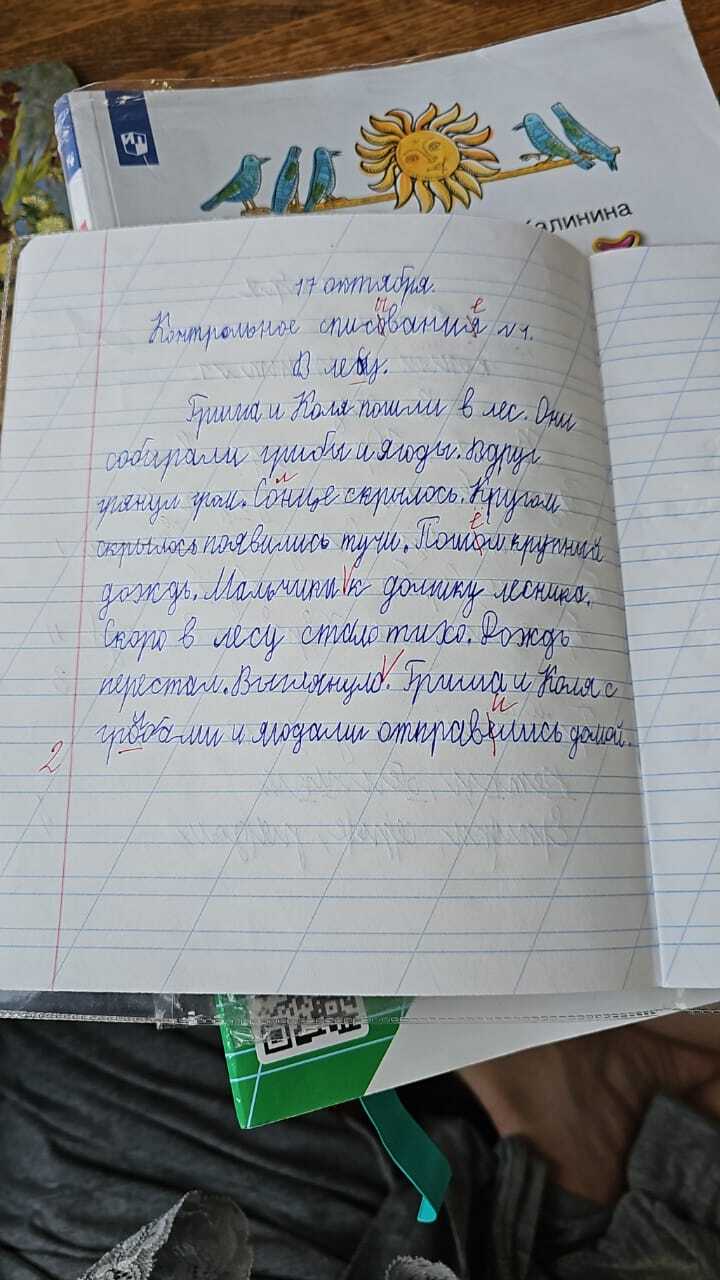 Калинина
17 октября.
Контрольное списования №1.
В лесу.
Гриша и Коля пошли в лес. Они
собирали грибы и ягоды. Вдруг
грянул гром. Сонце скрылось. Кругом
скрылось появились тучи. Пошом крупний
дождь. Мальчики к домику лесника.
Скоро в лесу стало тихо. Дождь
перестал. Выглянуло. Гриша и Коля с
грибами и ягодами отправелись домой.
2